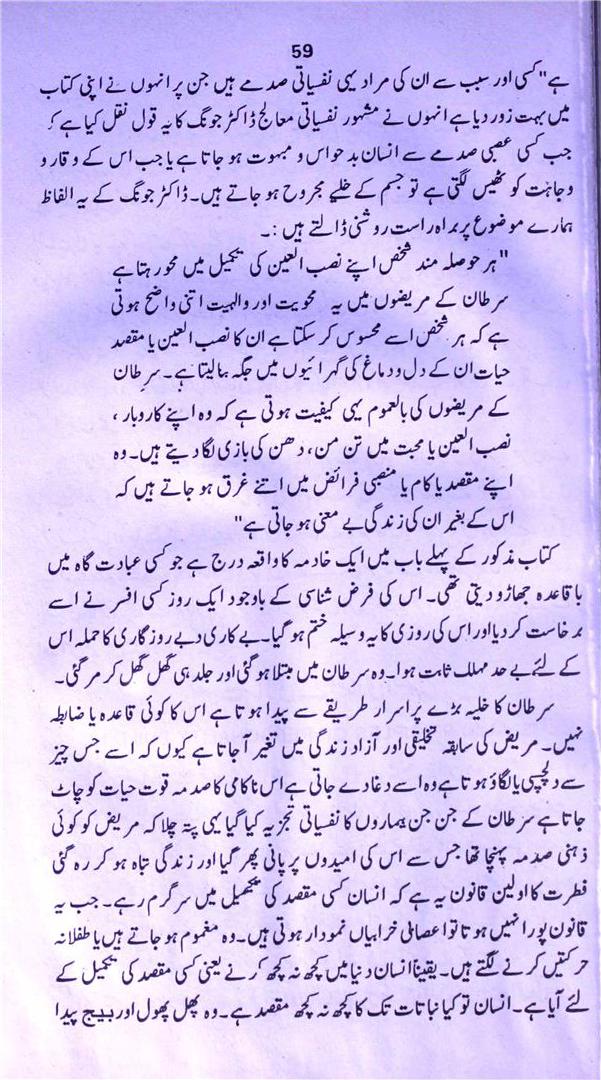 59
ہے" کسی اور سبب سے ان کی مراد یہی نفسیاتی صدمے ہیں جن پر انہوں نے اپنی کتاب
میں بہت زور دیا ہے انہوں نے مشہور نفسیاتی معالج ڈاکٹر جونگ کا یہ قول نقل کیا ہے کہ
جب کسی عصبی صدمے سے انسان بدحواس و مبہوت ہو جاتا ہے یا جب اس کے وقار و
وجاہت کو ٹھیس لگتی ہے تو جسم کے خلیے مجروح ہو جاتے ہیں۔ ڈاکٹر جونگ کے یہ الفاظ
ہمارے موضوع پر براہ راست روشنی ڈالتے ہیں :۔
"ہر حوصلہ مند شخص اپنے نصب العین کی تکمیل میں محو رہتا ہے
سرطان کے مریضوں میں یہ محویت اور والہیت اتنی واضح ہوتی
ہے کہ ہر شخص اسے محسوس کر سکتا ہے ان کا نصب العین یا مقصد
حیات ان کے دل و دماغ کی گہرائیوں میں جگہ بنا لیتا ہے۔ سرطان
کے مریضوں کی بالعموم یہی کیفیت ہوتی ہے کہ وہ اپنے کاروبار ،
نصب العین یا محبت میں تن من، دھن کی بازی لگا دیتے ہیں۔ وہ
اپنے مقصد یا کام یا منصبی فرائض میں اتنے غرق ہو جاتے ہیں کہ
اس کے بغیر ان کی زندگی بے معنی ہو جاتی ہے"
کتاب مذکور کے پہلے باب میں ایک خادمہ کا واقعہ درج ہے جو کسی عبادت گاہ میں
باقاعدہ جھاڑو دیتی تھی۔ اس کی فرض شناسی کے باوجود ایک روز کسی افسر نے اسے
برخاست کر دیا اور اس کی روزی کا یہ وسیلہ ختم ہو گیا۔ بے کاری و بے روزگاری کا حملہ اس
کے لئے بے حد مہلک ثابت ہوا۔ وہ سرطان میں مبتلا ہو گئی اور جلد ہی گھل گھل کر مر گئی۔
سرطان کا خلیہ بڑے پراسرار طریقے سے پیدا ہوتا ہے اس کا کوئی قاعدہ یا ضابطہ
نہیں۔ مریض کی سابقہ تخلیقی اور آزاد زندگی میں تغیر آ جاتا ہے کیوں کہ اسے جس چیز
سے دلچسپی یا لگاؤ ہوتا ہے وہ اسے دغا دے جاتی ہے اس ناکامی کا صدمہ قوت حیات کو چاٹ
جاتا ہے سرطان کے جن جن بیماروں کا نفسیاتی تجزیہ کیا گیا یہی پتہ چلا کہ مریض کو کوئی
ذہنی صدمہ پہنچا تھا جس سے اس کی امیدوں پر پانی پھر گیا اور زندگی تباہ ہو کر رہ گئی
فطرت کا اولین قانون یہ ہے کہ انسان کسی مقصد کی تکمیل میں سرگرم رہے۔ جب یہ
قانون پورا نہیں ہوتا تو اعصابی خرابیاں نمودار ہوتی ہیں۔ وہ مغموم ہو جاتے ہیں یا طفلانہ
حرکتیں کرنے لگتے ہیں۔ یقیناً انسان دنیا میں کچھ نہ کچھ کرنے یعنی کسی مقصد کی تکمیل کے
لئے آیا ہے۔ انسان تو کیا نباتات تک کا کچھ نہ کچھ مقصد ہے۔ وہ پھل پھول اور بیج پیدا